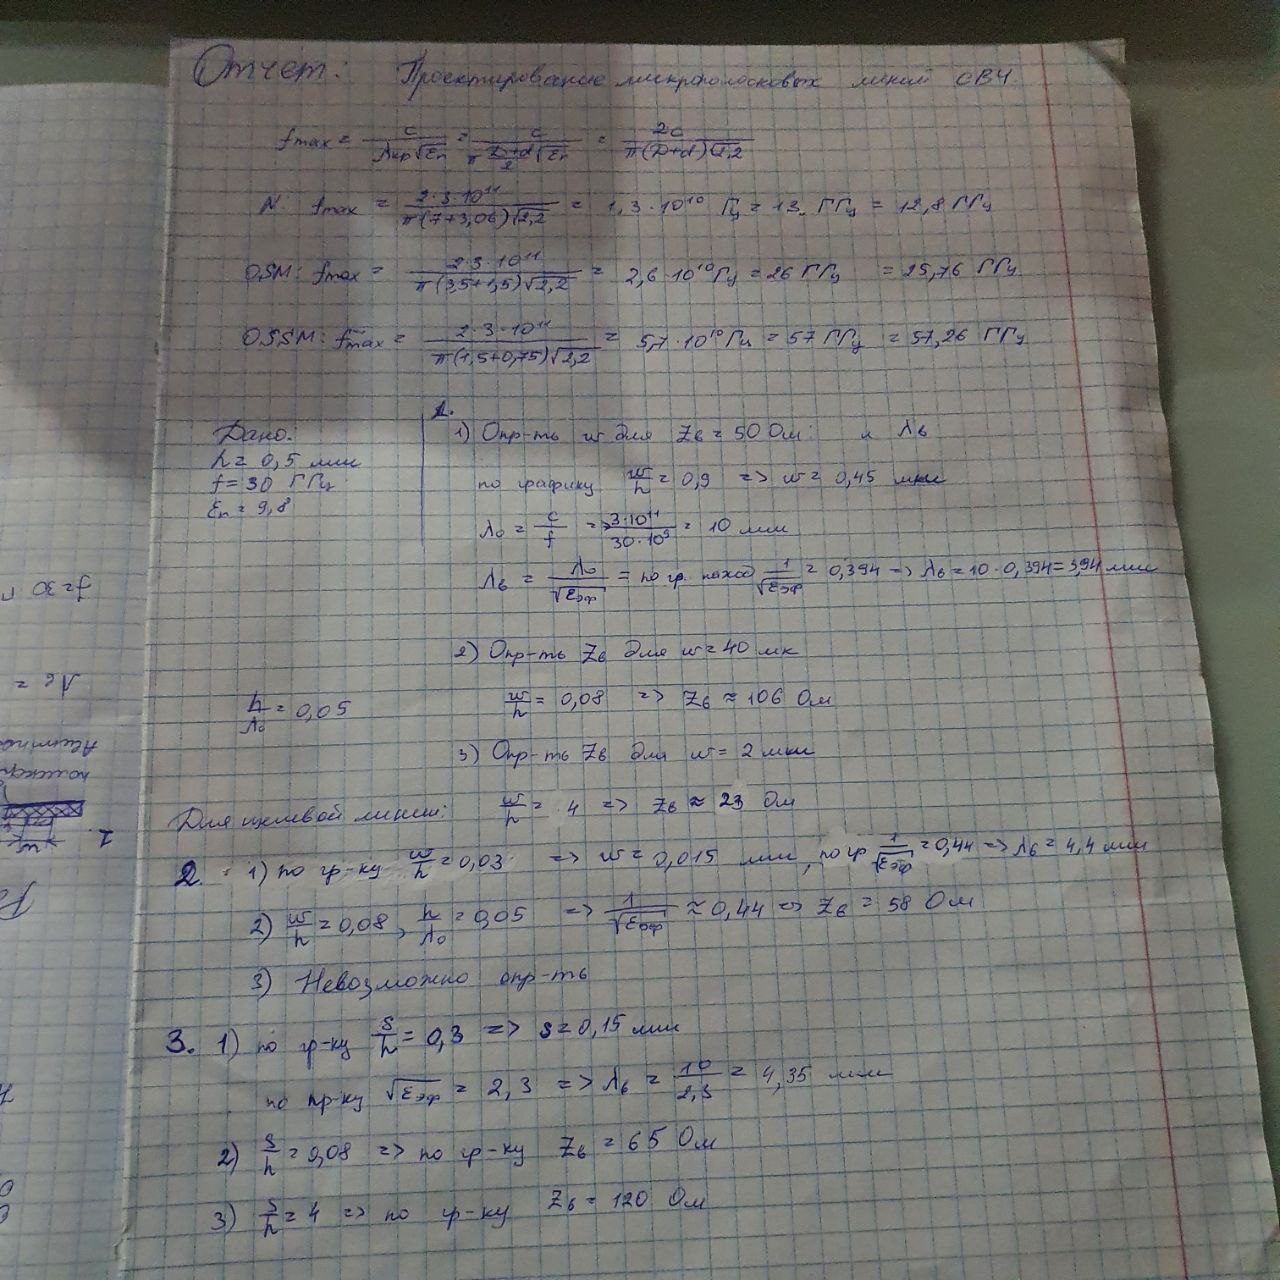 Отчет: Проектирование микрополосковых линий СВЧ.
fmax = c/(λкр√εп) = c/(π (D+d)/2 √εп) = 2c/(π(D+d)√2,2)
N: fmax = 2·3·10¹¹/(π(7+3,06)√2,2) = 1,3·10¹⁰ Гц = 13 ГГц = 12,8 ГГц
OSM: fmax = 2·3·10¹¹/(π(3,5+1,5)√2,2) = 2,6·10¹⁰ Гц = 26 ГГц = 25,76 ГГц
OSSM: fmax = 2·3·10¹¹/(π(1,5+0,75)√2,2) = 5,7·10¹⁰ Гц = 57 ГГц = 57,26 ГГц
Дано:
h = 0,5 мм
f = 30 ГГц
εп = 9,8
1.
1) Опр-ть w для Zв = 50 Ом и λв
по графику w/h = 0,9 => w = 0,45 мм
λ0 = c/f => 3·10¹¹/30·10⁹ = 10 мм
λв = λ0/√εэф = по гр. наход 1/√εэф = 0,394 => λв = 10·0,394 = 3,94 мм
2) Опр-ть Zв для w = 40 мк
h/λ0 = 0,05
w/h = 0,08 => Zв ≈ 106 Ом
3) Опр-ть Zв для w = 2 мм
w/h = 4 => Zв ≈ 23 Ом
Для щелевой линии:
2. 1) по гр-ку w/h = 0,03 => w = 0,015 мм, по гр 1/√εэф = 0,44 => λв = 4,4 мм
2) w/h = 0,08, h/λ0 = 0,05 => 1/√εэф ≈ 0,44 => Zв = 58 Ом
3) Невозможно опр-ть
3. 1) по гр-ку s/h = 0,3 => s = 0,15 мм
по гр-ку √εэф = 2,3 => λв = 10/2,3 = 4,35 мм
2) s/h = 0,08 => по гр-ку Zв = 65 Ом
3) s/h = 4 => по гр-ку Zв = 120 Ом
f = 30 Г
λв =